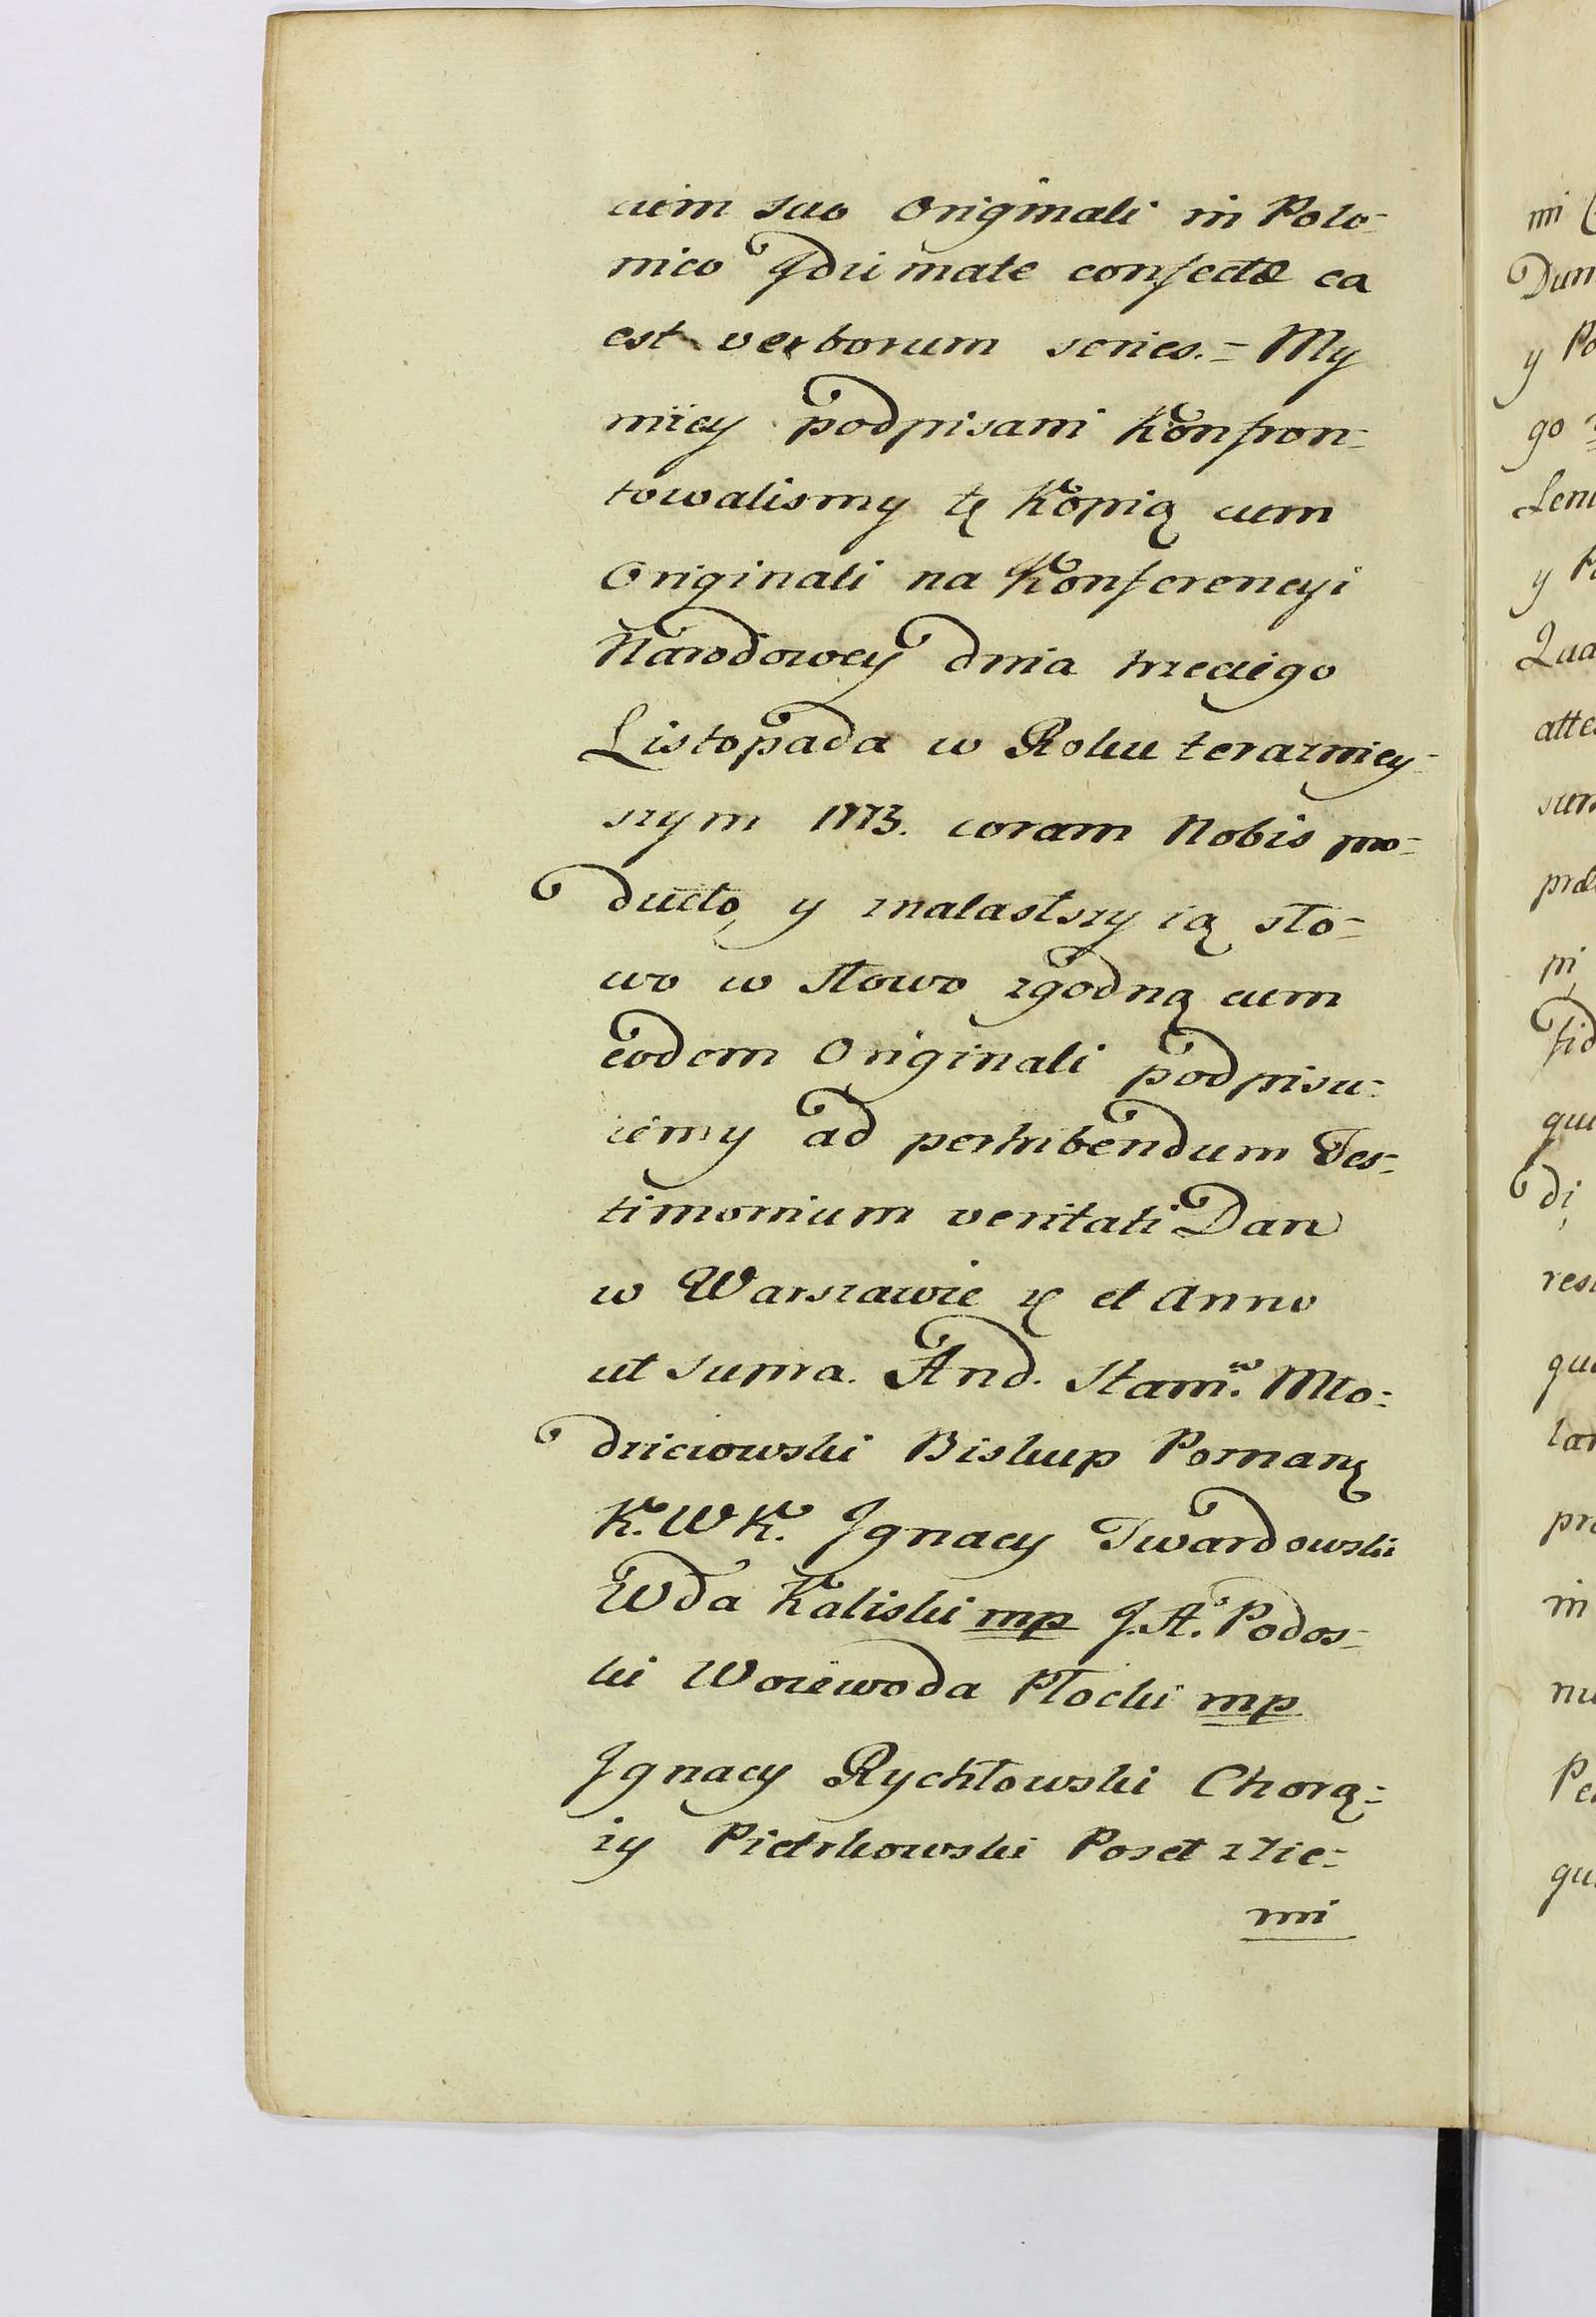 cum suo Originali in Polo=
nico Idiimate confectæ ea
est verborum series.= My
niiey podpisani Konfron=
towalismy tę Kopią cum
Originali na Konferencyi
Narodowey dnia trzeciego
Listopada w Roku terazniey=
szym 1773. coram Nobis pro=
ducto, y znalasłszy ią sło=
wo w słowo zgodną cum
eodem Originali podpisu=
iemy ad perhibendum Tes=
timonium veritati Dan
w Warszawie et Anno
ut supra. And. Stani.w Mło=
dzieiowski Biskup Poznanę
K. W K. Ignacy Twardowski
Wda Kaliski mp J. A. Podos=
ki Woiewoda Płocki mp
Ignacy Rychłowski Chorą=
ży Pietrkowski Poseł Zie=
mi
mi
Dun
y Po
go
Leni
y P
Qua
atte
sum
præ
pi
fid
qui
di,
res
qu
lar
pr
in
nu
Pe
qu